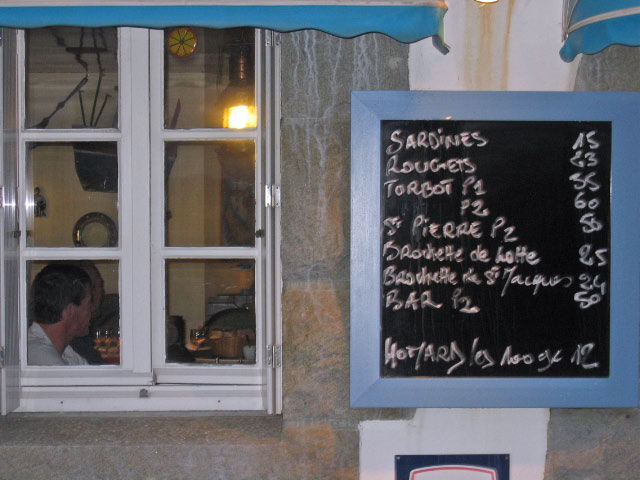 SARDINES 15
ROUGETS 23
TORBOT P1 35
P2 60
St PIERRE P2 50
Brochette de Lotte 25
Brochette de St Jacques 24
BAR P2 50
HOMARD les 100gr 12